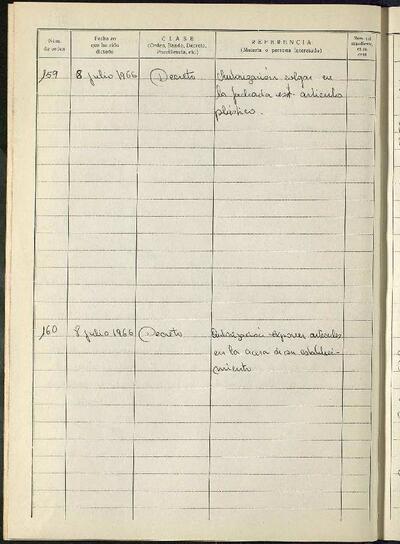 Núm. de orden
Fecha en que ha sido dictado
CLASE
(Orden, Bando, Decreto, Providencia, etc.)
REFERENCIA
(Materia o persona interesada)
159 8 julio 1966 Decreto Autorización colgar en
la fachada ext. artículos
plástico.
160 8 julio 1966 Decreto Autorización exponer artículos
en la acera de su estableci-
miento